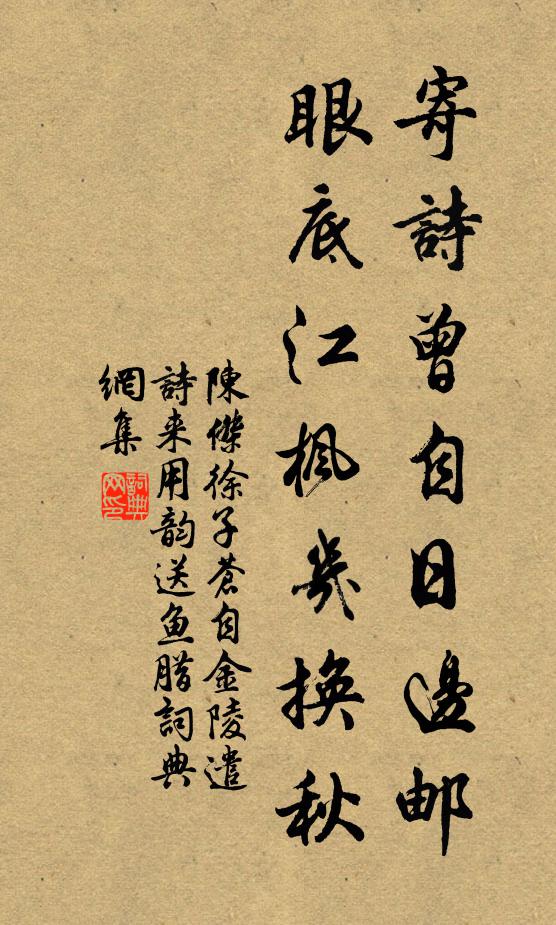 寄詩曾自日邊邮
眼底江楓幾換秋
陳傑徐子蒼自金陵遣
詩来用韵送鱼腊詞典
網集
詞典網印